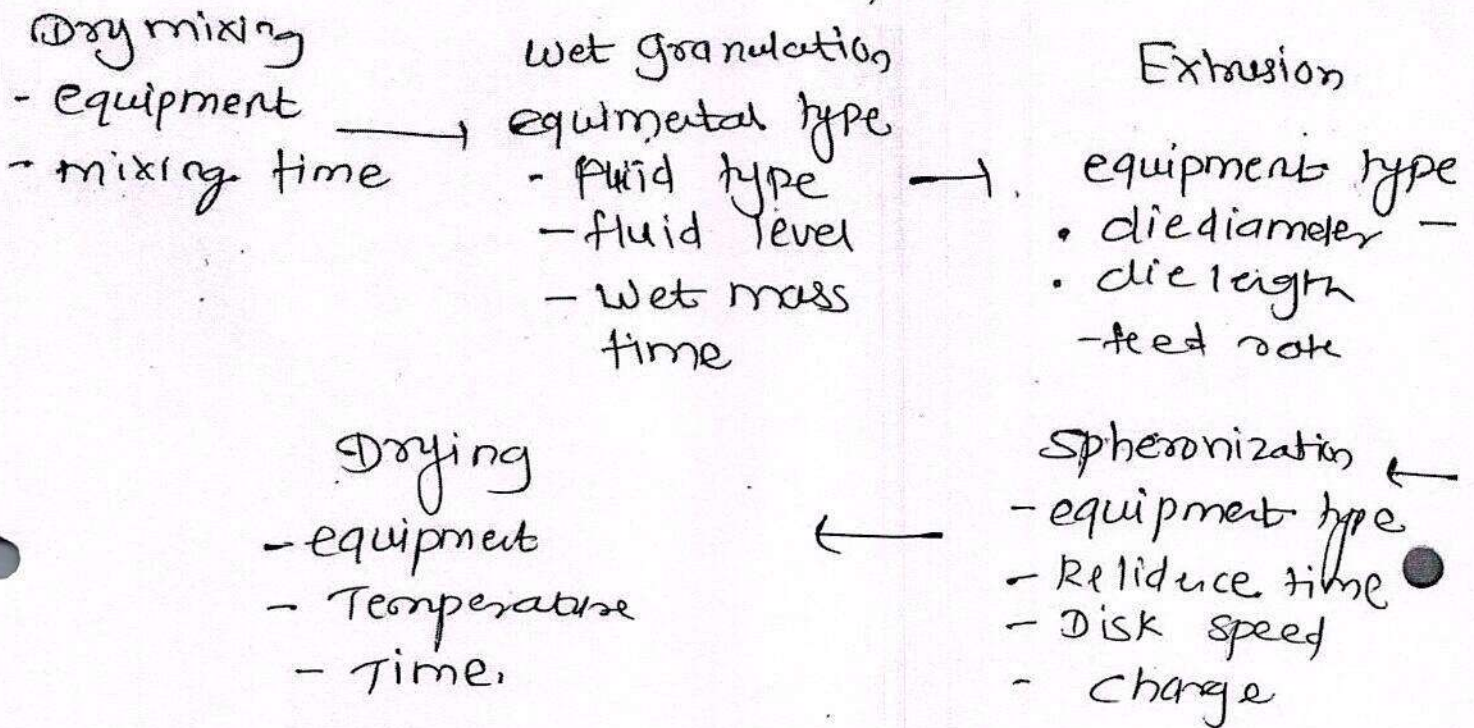 Dry mixing
- equipment
- mixing time
wet granulation
equimetal type
- fluid type
- fluid level
- wet mass
time
Extrusion
equipment type
• diediameter -
• die length
- feed rate
Spheronization
- equipment type
- Relidence time
- Disk speed
- charge
Drying
- equipment
- Temperature
- Time.